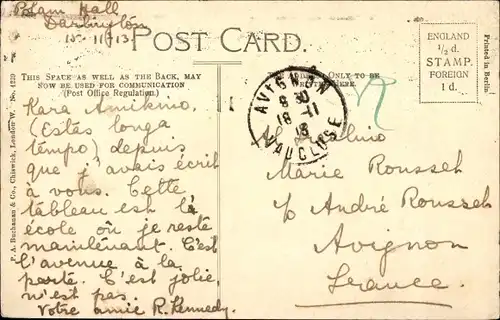 Polam Hall
Darlington
15-11-13
POST CARD.
THIS SPACE AS WELL AS THE BACK, MAY
NOW BE USED FOR COMMUNICATION
(Post Office Regulation)
Kara Amikino,
(Estas longa
tempo) depuis
que j'avais écrit
à vous. Cette
tableau est l'é
école où je reste
maintenant. C'est
l'avenue à la
porte. C'est jolie,
n'est pas
Votre amie R. Kennedy.
P. A. Buchanan & Co., Chiswick, London W. No. 4120
ADDRESS ONLY TO BE
WRITTEN HERE.
AVIGNON
8 30
18 -11
13
VAUCLUSE
ENGLAND
½ d.
STAMP.
FOREIGN
1 d.
Printed in Berlin.
Marie Rousset
c/o André Rousset
Avignon
France.